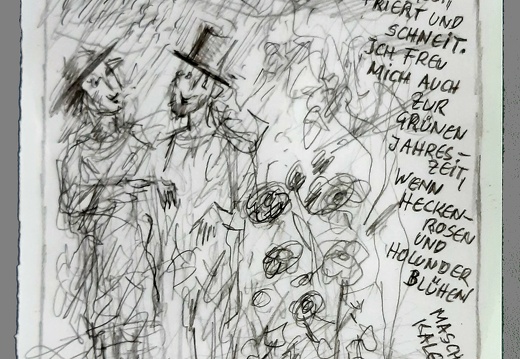 FRIERT UND
SCHNEIT.
ICH FREU
MICH AUCH
ZUR
GRÜNEN
JAHRES-
ZEIT,
WENN
HECKEN-
ROSEN
UND
HOLUNDER
BLÜHEN